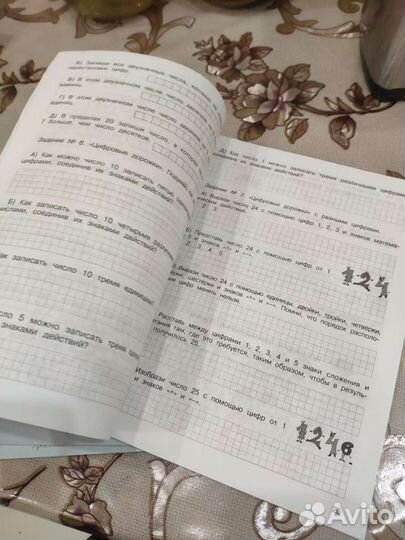 Б) Запиши все двузначные числа,
перестановке цифр.
В) В этом двузначном числе число десятков
единиц.
Г) В этом двузначном числе число десятков
единиц.
Д) В пределах 20 запиши число, в котором
7 больше, чем число десятков.
Задание № 6. «Цифровые дорожки».
А) Как можно число 10 записать пятью
цифрами, соединив их знаками действий?
Б) Как записать число 10 четырьмя
числами, соединив их знаками действий?
как записать число 10 тремя единицами
число 5 можно записать тремя
знаками действий?
Д) Как число 1 можно записать тремя различными цифрами,
соединив их знаками действий?
Задание № 7. «Цифровые дорожки» с разными цифрами.
А) Вырази число 24 с помощью цифр 1, 2, 3 и знаков матема-
тических действий.
2 3
Б) Представь число 24 с помощью цифр от 1
5 и знаков «+» и «−».
2, 3, 4, 5
Вырази число 24 с помощью единицы, двойки, тройки, четвёрки,
шестёрки и знаков «+» и «−». Помни, что порядок располо-
цифр менять нельзя.
Расставь между цифрами 1, 2, 3, 4 и 5 знаки сложения и
вычитания там, где это требуется, таким образом, чтобы в резуль-
получилось 25.
Изобрази число 25 с помощью цифр от 1
и знаков «+» и «−».
124
1246
Avito